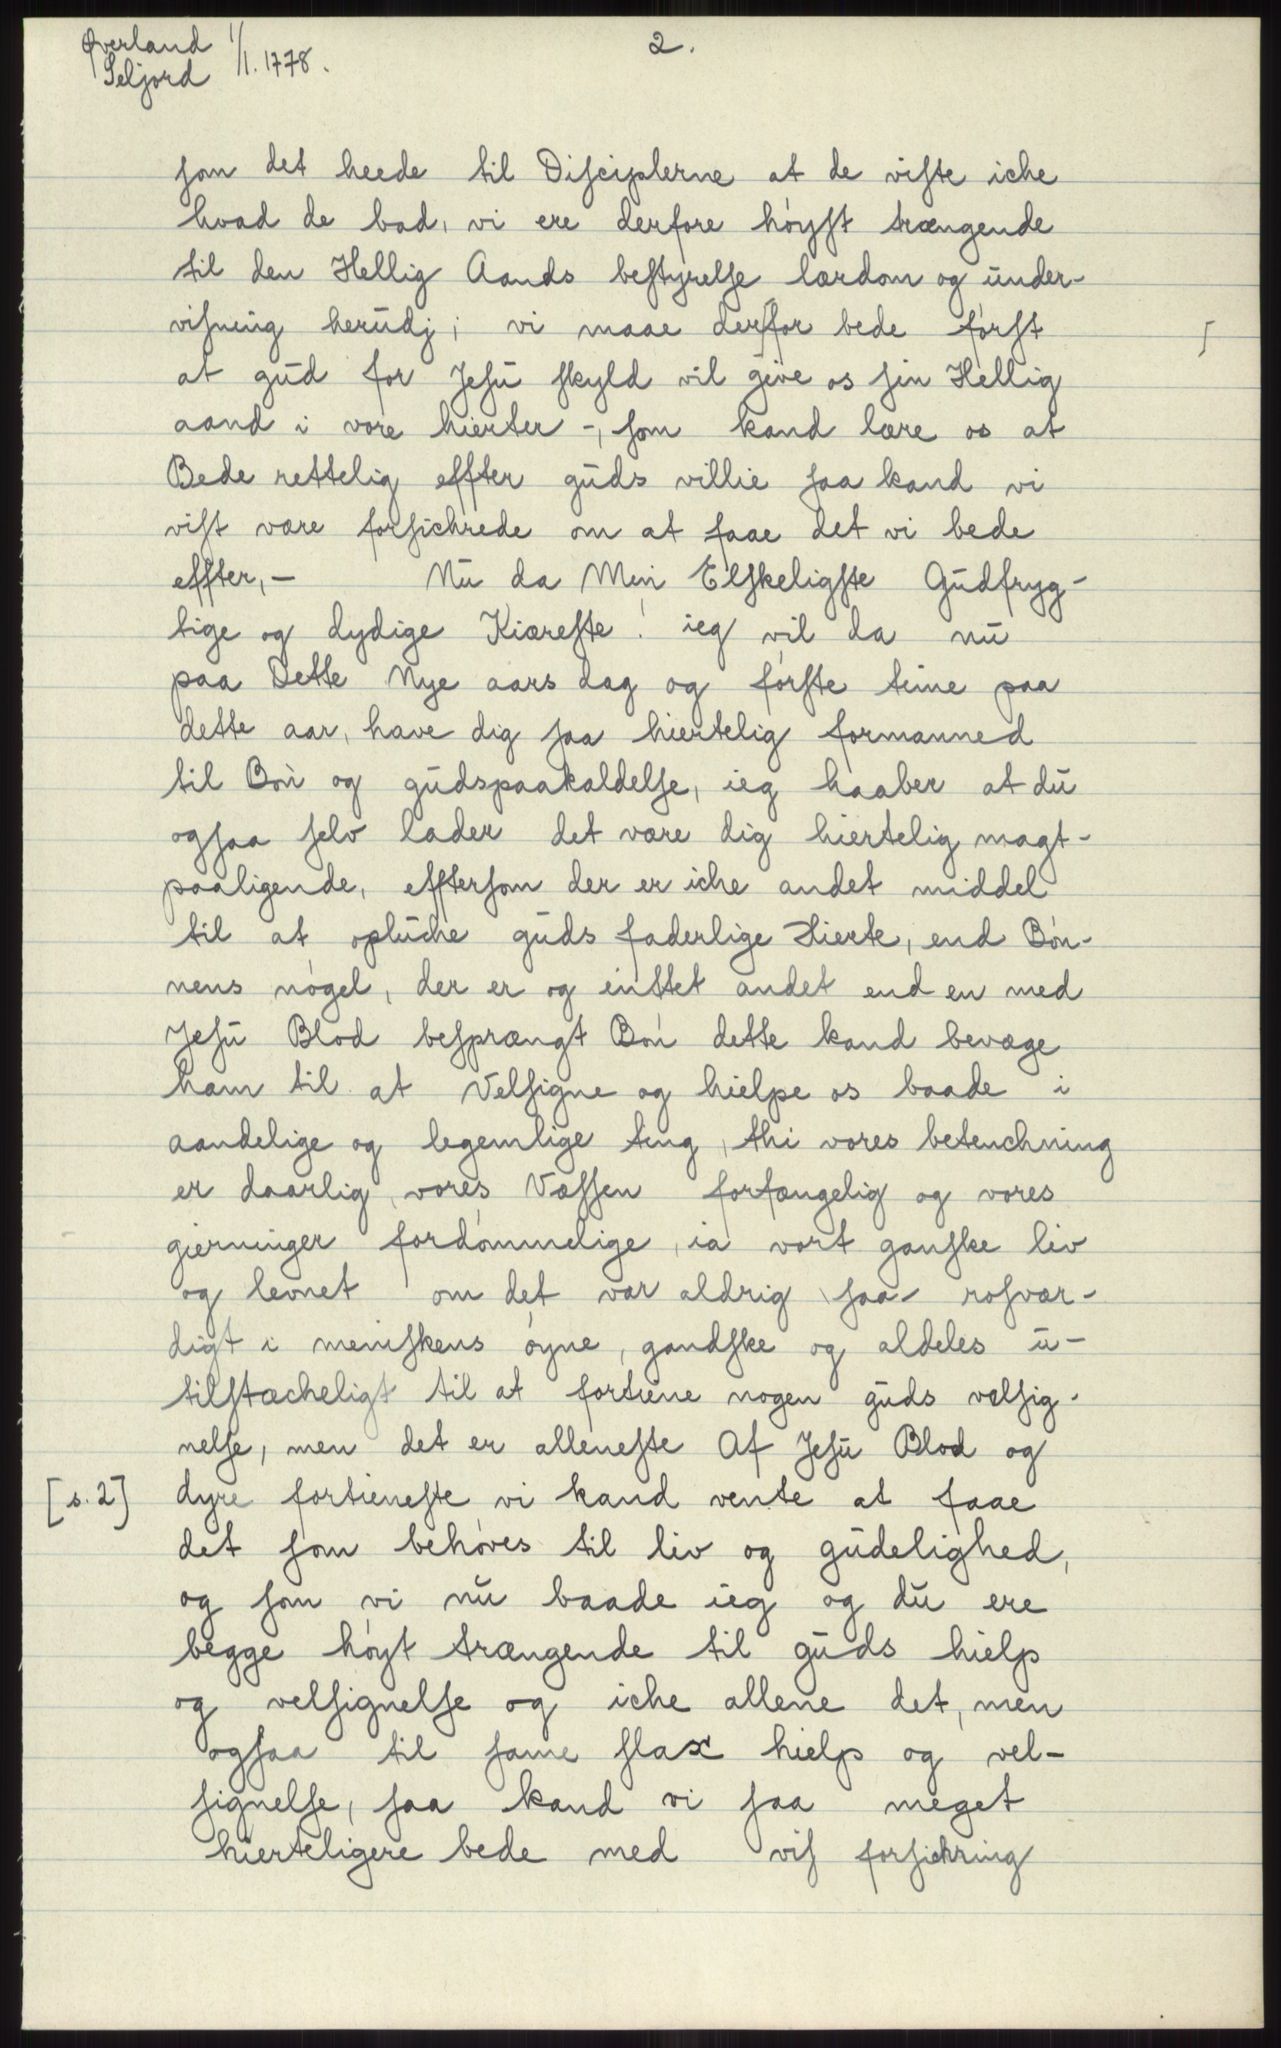 Øverland 1/1. 1778.
Seljord
2.
som det heede til Disciplerne at de viste iche
hvad de bad, vi ere derfore höyst trængende
til den Hellig Aands bestyrelse lærdom og ünder-
visning herüdj; vi maae derfor bede först
at güd for Jesü skyld vil give os sin Hellig
aand i vore hierter -, som kand lære os at
Bede rettelig effter güds villie saa kand vi
vist være forsichrede om at faae det vi bede
effter, - Nü da Min Elskeligste Güdfryg-
tige og dydige Kiæreste! ieg vil da nü
paa Dette Nye aars dag og förste time paa
dette aar, have dig saa hiertelig formanned
til Bön og güdspaakaldelse, ieg haaber at dü
ogsaa selv lader det være dig hiertelig magt-
paaligende, efftersom der er iche andet middel
til at oplüche güds faderlige Hierte, end Bön-
nens nögel, der er og intet andet end en med
Jesü Blod besprængt Bön dette kand bevæge
ham til at Velsigne og hielpe os baade i
aandelige og legemlige ting, thi vores betenchning
er daarlig, vores Væssen forfængelig og vores
gierninger fordömmelige, ia vort ganske liv
og levnet om det var aldrig saa rosvær-
digt i meniskens öyne, gandske og aldeles ü-
tilstæcheligt til at fortiene nogen güds velsig-
nelse, men det er alleneste Af Jesü Blod og
[s. 2] dyre fortieneste vi kand vente at faae
det som behöves til liv og güdelighed,
og som vi nü baade ieg og dü ere
begge höyt trængende til güds hielp
og velsignelse og iche allene det, men
ogsaa til same slax hielp og vel-
signelse, saa kand vi saa meget
hierteligere bede med vis forsichring